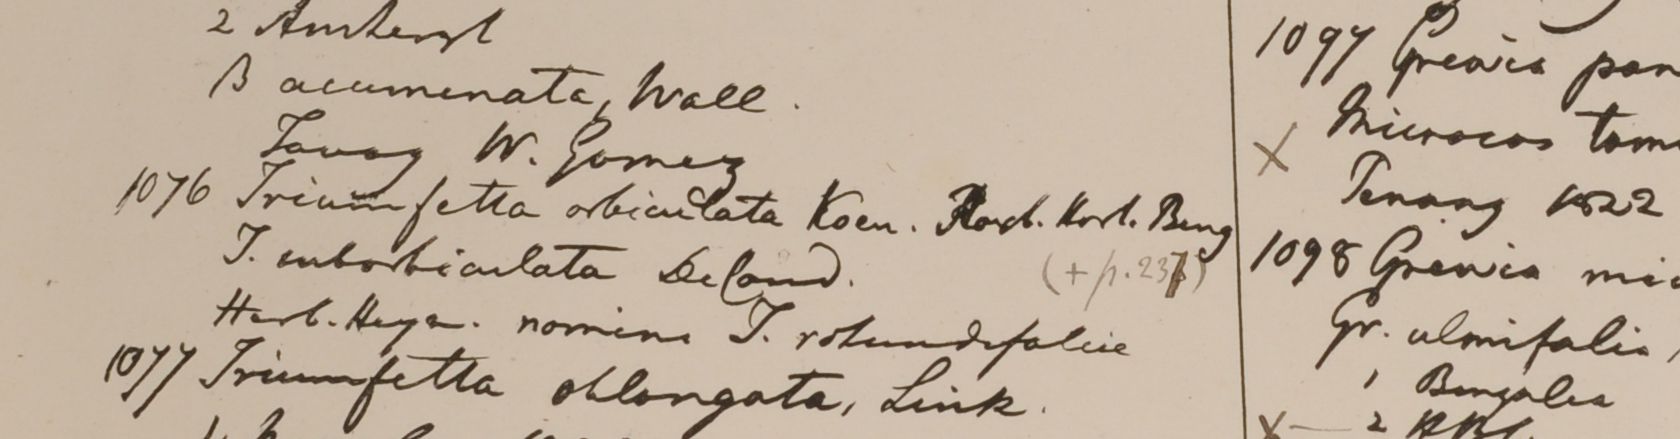 2 Amherst
β acumenata, Wall.
Tavoy W. Gomez
1076 Triumfetta orbiculata Koen. Roxb. Herb. Beng
T. suborbiculata DeCand.
(+ p. 237)
Herb. Heyn. nomine T. rotundifoliae
1077 Triumfetta oblongata, Link.
1097 Grewia pan
Microcos tom
X Penang 1822
1098 Grewia mic
Gr. ulmifolia
1 Bengalia
X — 2